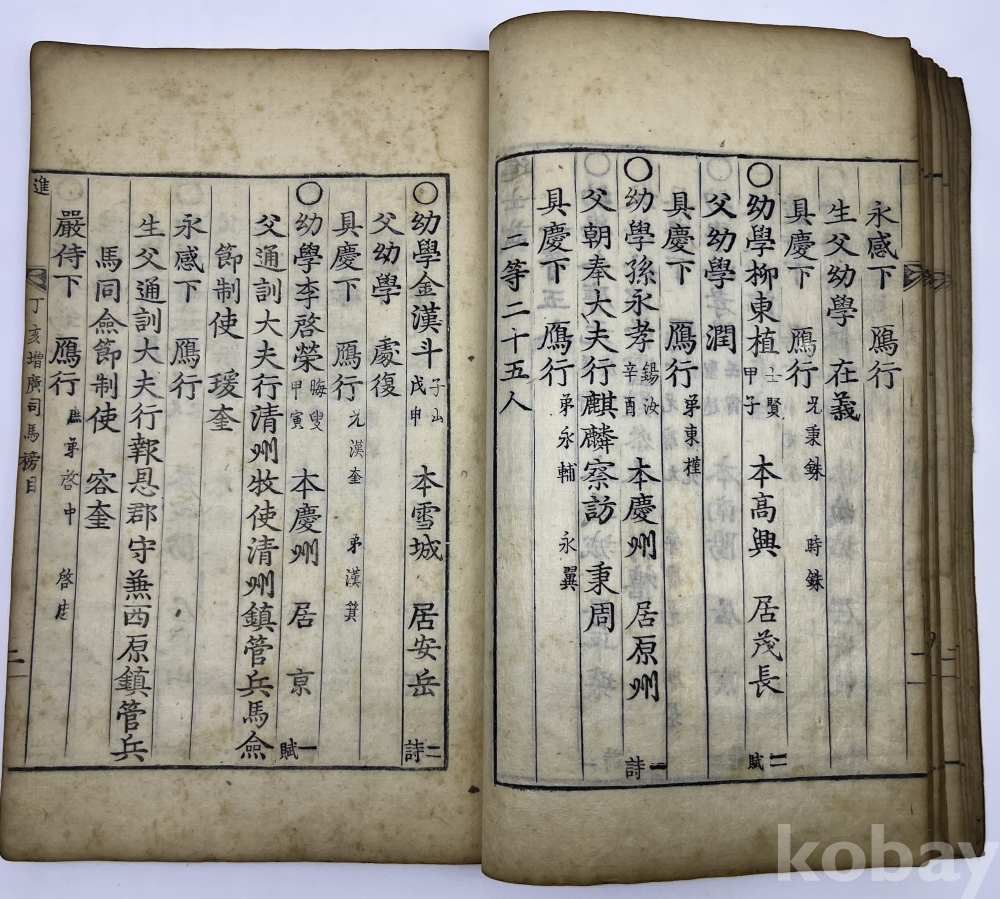 永感下 鴈行
生父幼學 在義
具慶下 鴈行 兄秉銖 時銖
○幼學柳東植 士賢 甲子 本高興 居茂長 二賦
父幼學 潤
具慶下 鴈行 弟東槿
○幼學孫永孝 錫汝 辛酉 本慶州 居原州 一詩
父朝奉大夫行麒麟察訪秉周
具慶下 鴈行 弟永輔 永翼
二等二十五人
○幼學金漢斗 子山 戊申 本雪城 居安岳 二詩
父幼學 處復
具慶下 鴈行 兄漢奎 弟漢箕
○幼學李啓榮 晦叟 甲寅 本慶州 居京 一賦
父通訓大夫行清州牧使清州鎮管兵馬僉
節制使 瑗奎
永感下 鴈行
生父通訓大夫行報恩郡守兼西原鎮管兵
馬同僉節制使 容奎
嚴侍下 鴈行 弟啓中
進 丁亥增廣司馬榜目 二
kobay